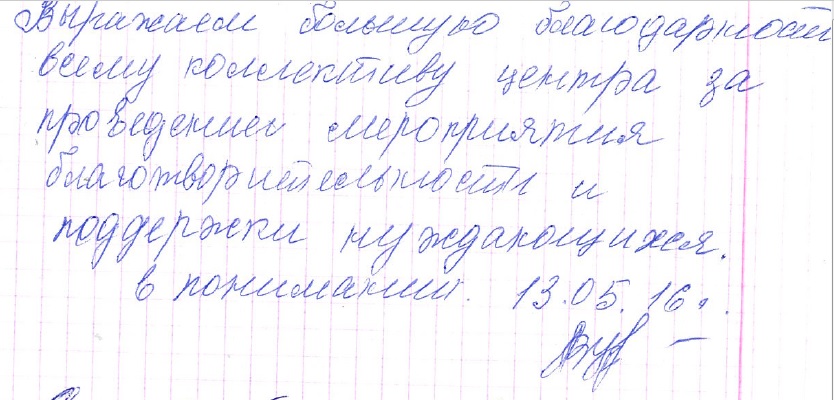 Выражаем большую благодарность
всему коллективу центра за
проведение мероприятия
благотворительности и
поддержки нуждающихся.
в понимании. 13.05.16г.